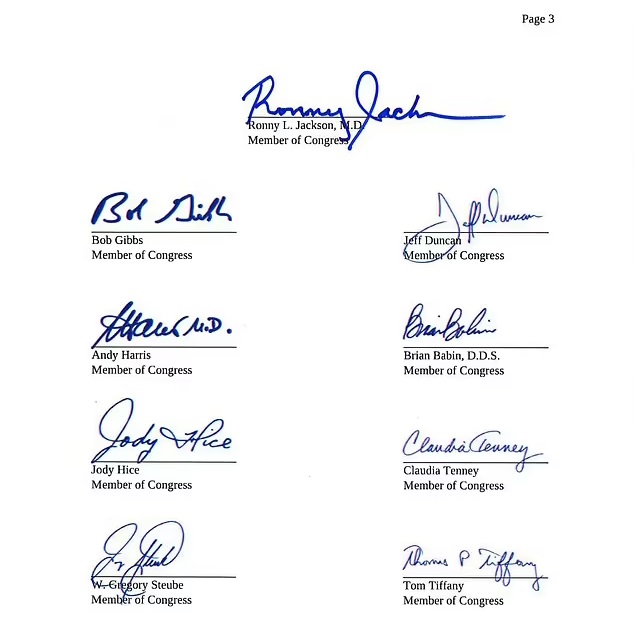 Page 3
Ronny Jackson
Ronny L. Jackson, M.D.
Member of Congress
Bob Gibbs
Jeff Duncan
Bob Gibbs
Jeff Duncan
Member of Congress
Member of Congress
AHarris M.D.
Brian Babin
Andy Harris
Brian Babin, D.D.S.
Member of Congress
Member of Congress
Jody Hice
Claudia Tenney
Jody Hice
Claudia Tenney
Member of Congress
Member of Congress
Thomas P Tiffany
W. Gregory Steube
Tom Tiffany
Member of Congress
Member of Congress